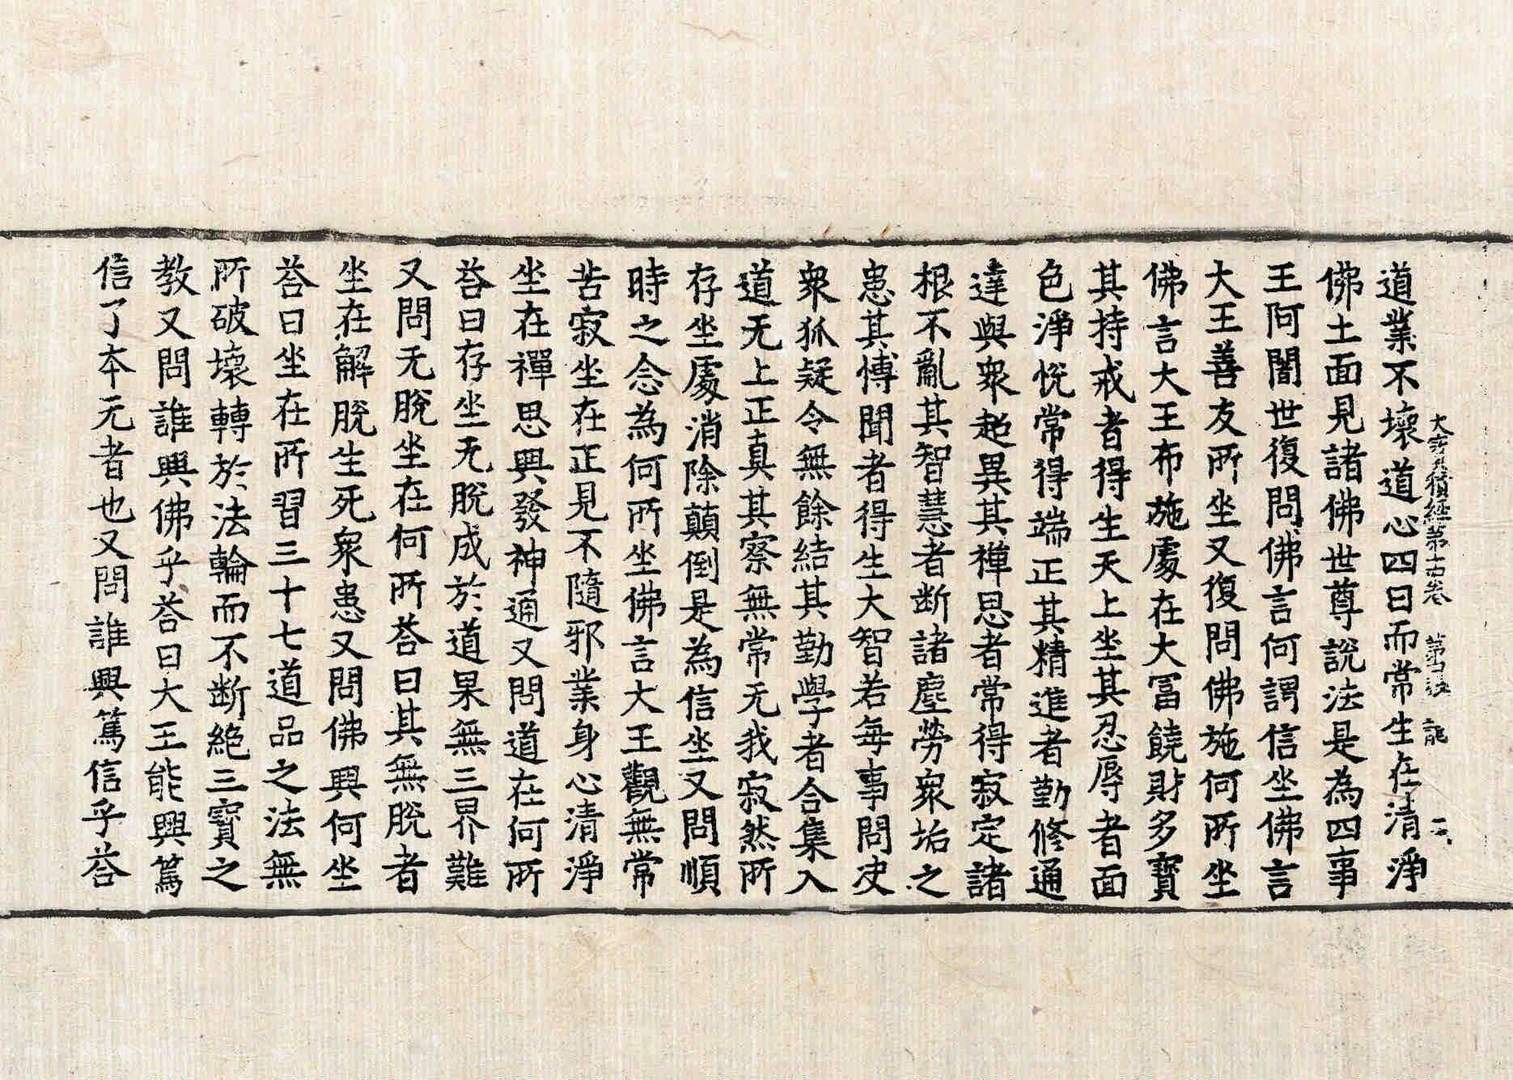 道業不壞道心四曰而常生在清淨
大寶積經第十古卷 第四張 龍
佛土面見諸佛世尊說法是為四事
王阿闍世復問佛言何謂信坐佛言
大王善友所坐又復問佛施何所坐
佛言大王布施處在大冨饒財多寳
其持戒者得生天上坐其忍辱者面
色淨悅常得端正其精進者勤修通
達與衆超異其禪思者常得寂定諸
根不亂其智慧者断諸塵勞衆垢之
患其博聞者得生大智若每事問決
衆狐疑令無餘結其勤學者合集入
道无上正真其察無常无我寂然所
存坐處消除顛倒是為信坐又問順
時之念為何所坐佛言大王觀無常
苦寂坐在正見不隨邪業身心清淨
坐在禪思興發神通又問道在何所
荅曰存坐无脫成於道果無三界難
又問无脫坐在何所荅曰其無脫者
坐在解脫生死衆患又問佛興何坐
荅曰坐在所習三十七道品之法無
所破壞轉於法輪而不断絕三寳之
教又問誰興佛乎荅曰大王能興篤
信了本无者也又問誰興篤信乎荅